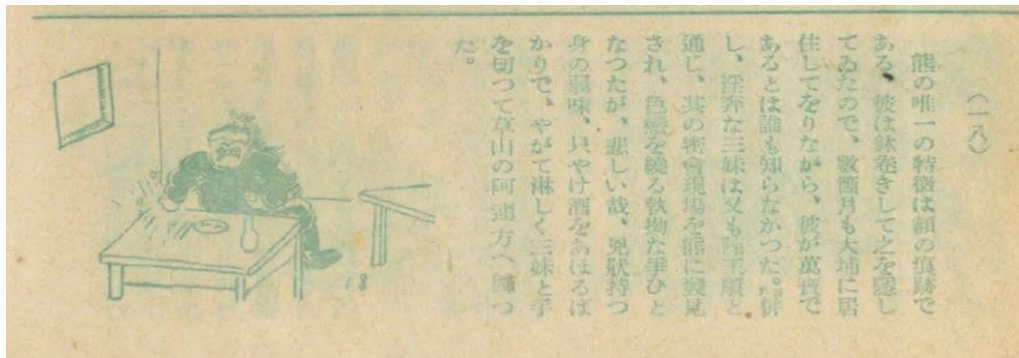 (一八)
熊の唯一の特徴は額の痕跡で
ある。彼は鉢卷きして之を隱し
てゐたので、數箇月も大埔に居
住してをりながら、彼が萬で
あるとは誰も知らなかつた。併
し、淫奔な三妹は又もと
通じ、其の密會現場を熊に發見
され、色を繞る執拗な爭ひと
なつたが、悲しい哉、兇狀持つ
身の弱味、只やけ酒をあほるば
かりで、やがて淋しく三妹と手
を切つて草山の阿蓮方へ歸つ
た。
18